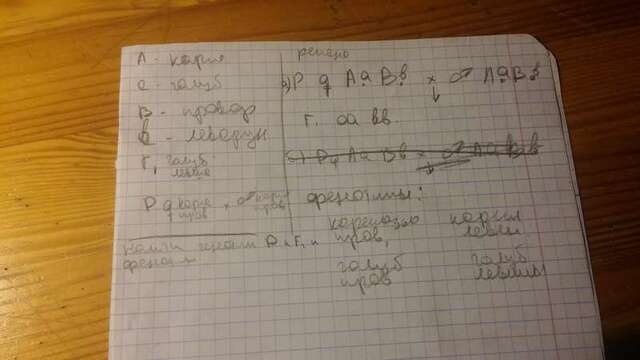 А - карие
а - голуб
В - правор
в - леворук
F₁ голуб
левши
P ♀ карие прав × ♂ карие прав
найти генотип P и F₁ и
фенотип
решено
P ♀ Аа Вв × ♂ Аа Вв
↓
F₁ аа вв
P ♀ Аа Вв × ♂ Аа Вв
фенотипы:
прав, карии левши
голуб прав голуб левши